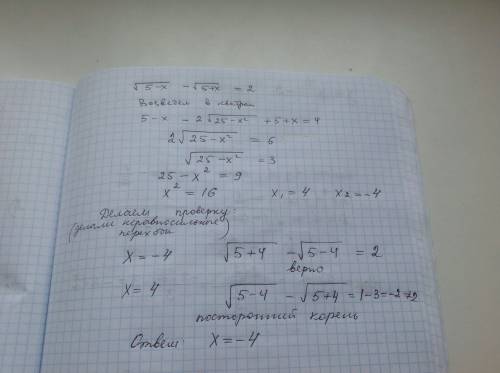 √5-x - √5+x = 2
Возведем в квадрат
5-x - 2√25-x² + 5+x = 4
2√25-x² = 6
√25-x² = 3
25-x² = 9
x² = 16 x₁ = 4 x₂ = -4
Делаем проверку
(делали неравносильные
переходы)
X = -4 √5+4 - √5-4 = 2
верно
X = 4 √5-4 - √5+4 = 1-3 = -2 ≠ 2
посторонний корень
Ответ: X = -4